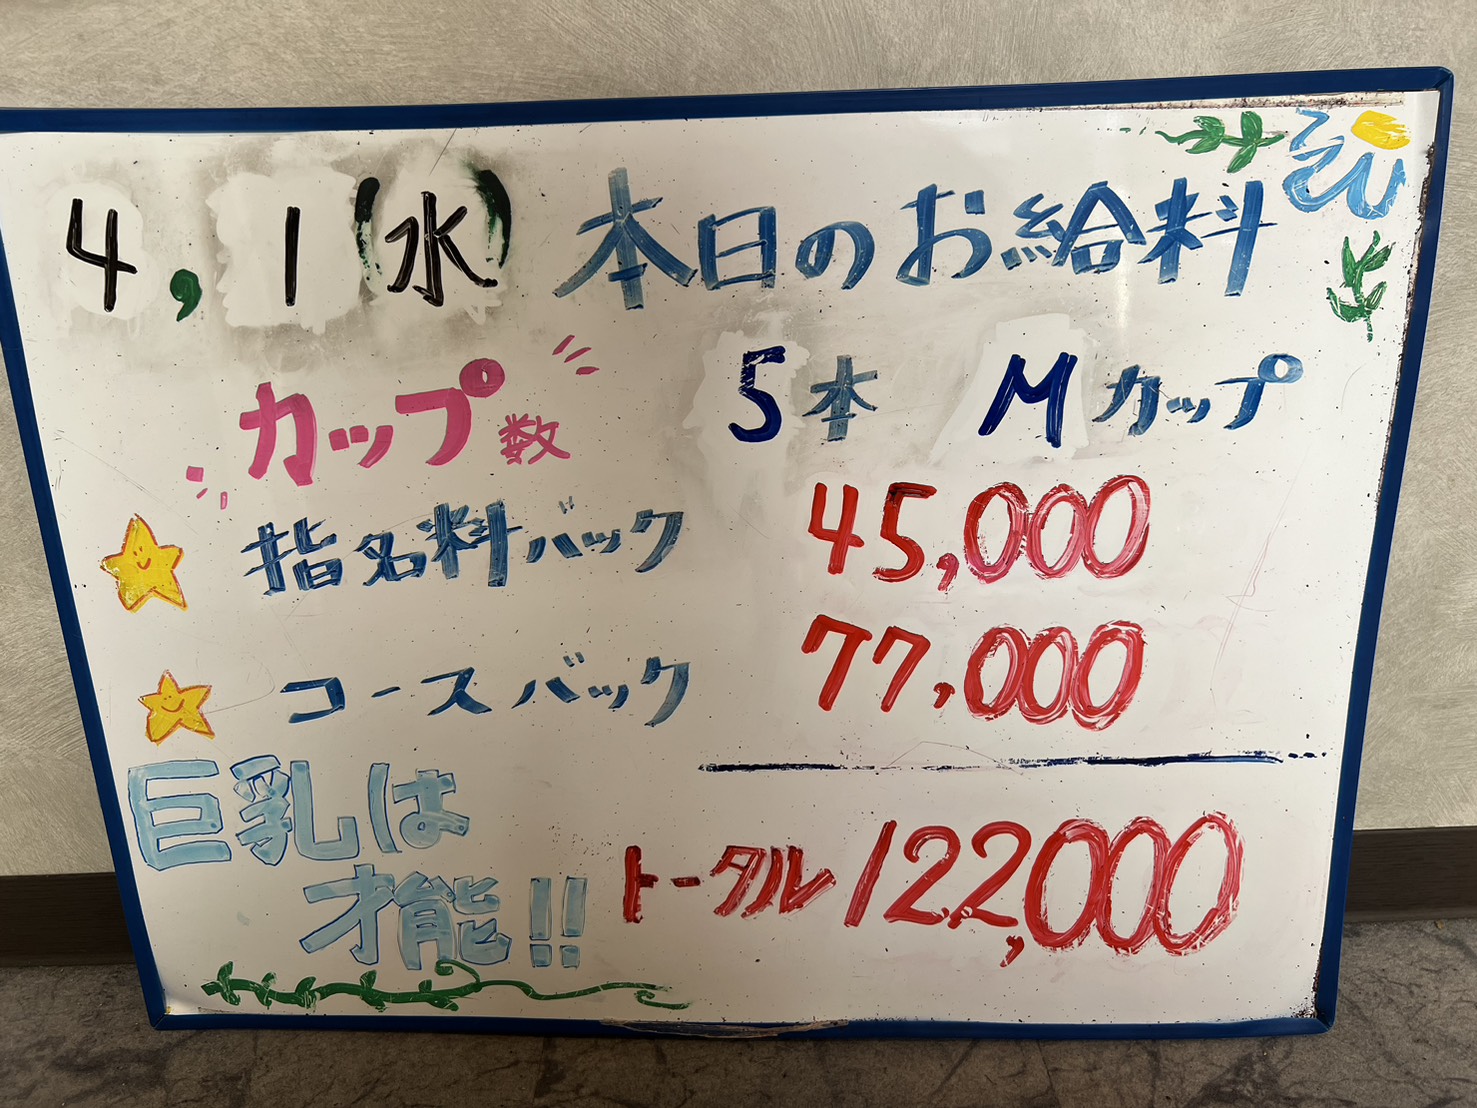 4,1(水) 本日のお給料
カップ数 5本 Mカップ
指名料バック 45,000
コースバック 77,000
巨乳は
才能!!
トータル 122,000